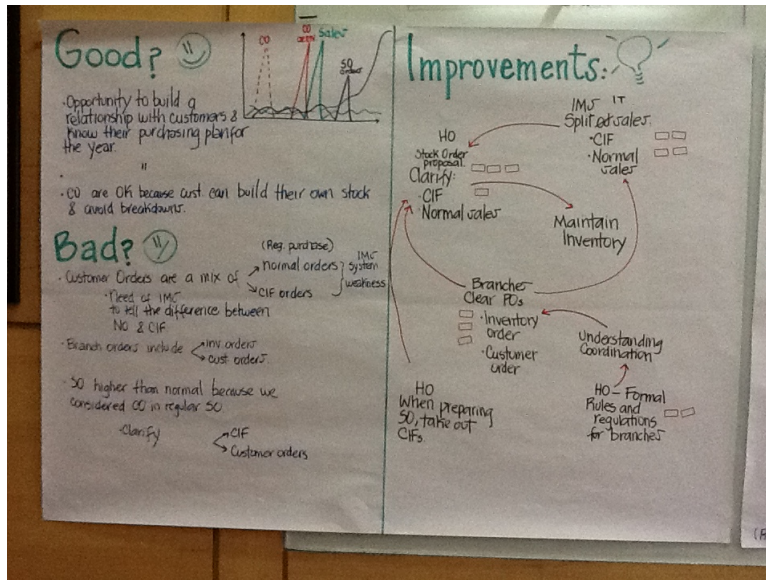 Good?
CO
CO
Sales
SO
orders
· Opportunity to build a
relationship with customers &
know their purchasing plan for
the year.
· "
· CO are OK because cust. can build their own stock
& avoid breakdowns.
Bad?
(Reg. purchase)
· Customer Orders are a mix of
normal orders
CIF orders
IMS
System
weakness
· Need of IMS
to tell the difference between
NO & CIF
· Branch orders include
inv. orders
cust. orders.
· SO higher than normal because we
considered CO in regular SO
· Clarify
CIF
Customer orders
Improvements:
IMS IT
Split of sales.
· CIF
· Normal
sales
HO
Stock Order
proposal.
Clarify:
· CIF
· Normal sales
Maintain
Inventory
Branches
Clear POs
· Inventory
order
· Customer
order
Understanding
Coordination
HO
When preparing
SO, take out
CIFs.
HO – Formal
Rules and
regulations
for branches